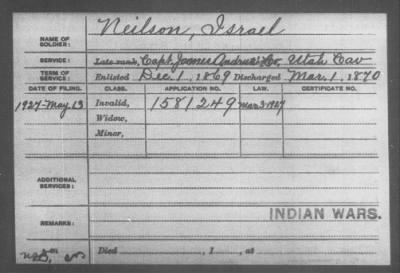 NAME OF SOLDIER: Neilson, Israel
SERVICE: Late rank, Capt James Andrus' Co, Utah Cav
TERM OF SERVICE: Enlisted Dec. 1, 1869 Discharged Mar. 1, 1870
DATE OF FILING. CLASS. APPLICATION NO. LAW. CERTIFICATE NO.
1927-May 13 Invalid, 1581249 Mar 3 1927
Widow,
Minor,
ADDITIONAL SERVICES:
INDIAN WARS.
REMARKS:
Died , 1 , at